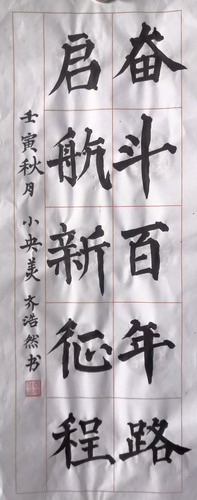 奋斗百年路
启航新征程
壬寅秋月小央美齐浩然书